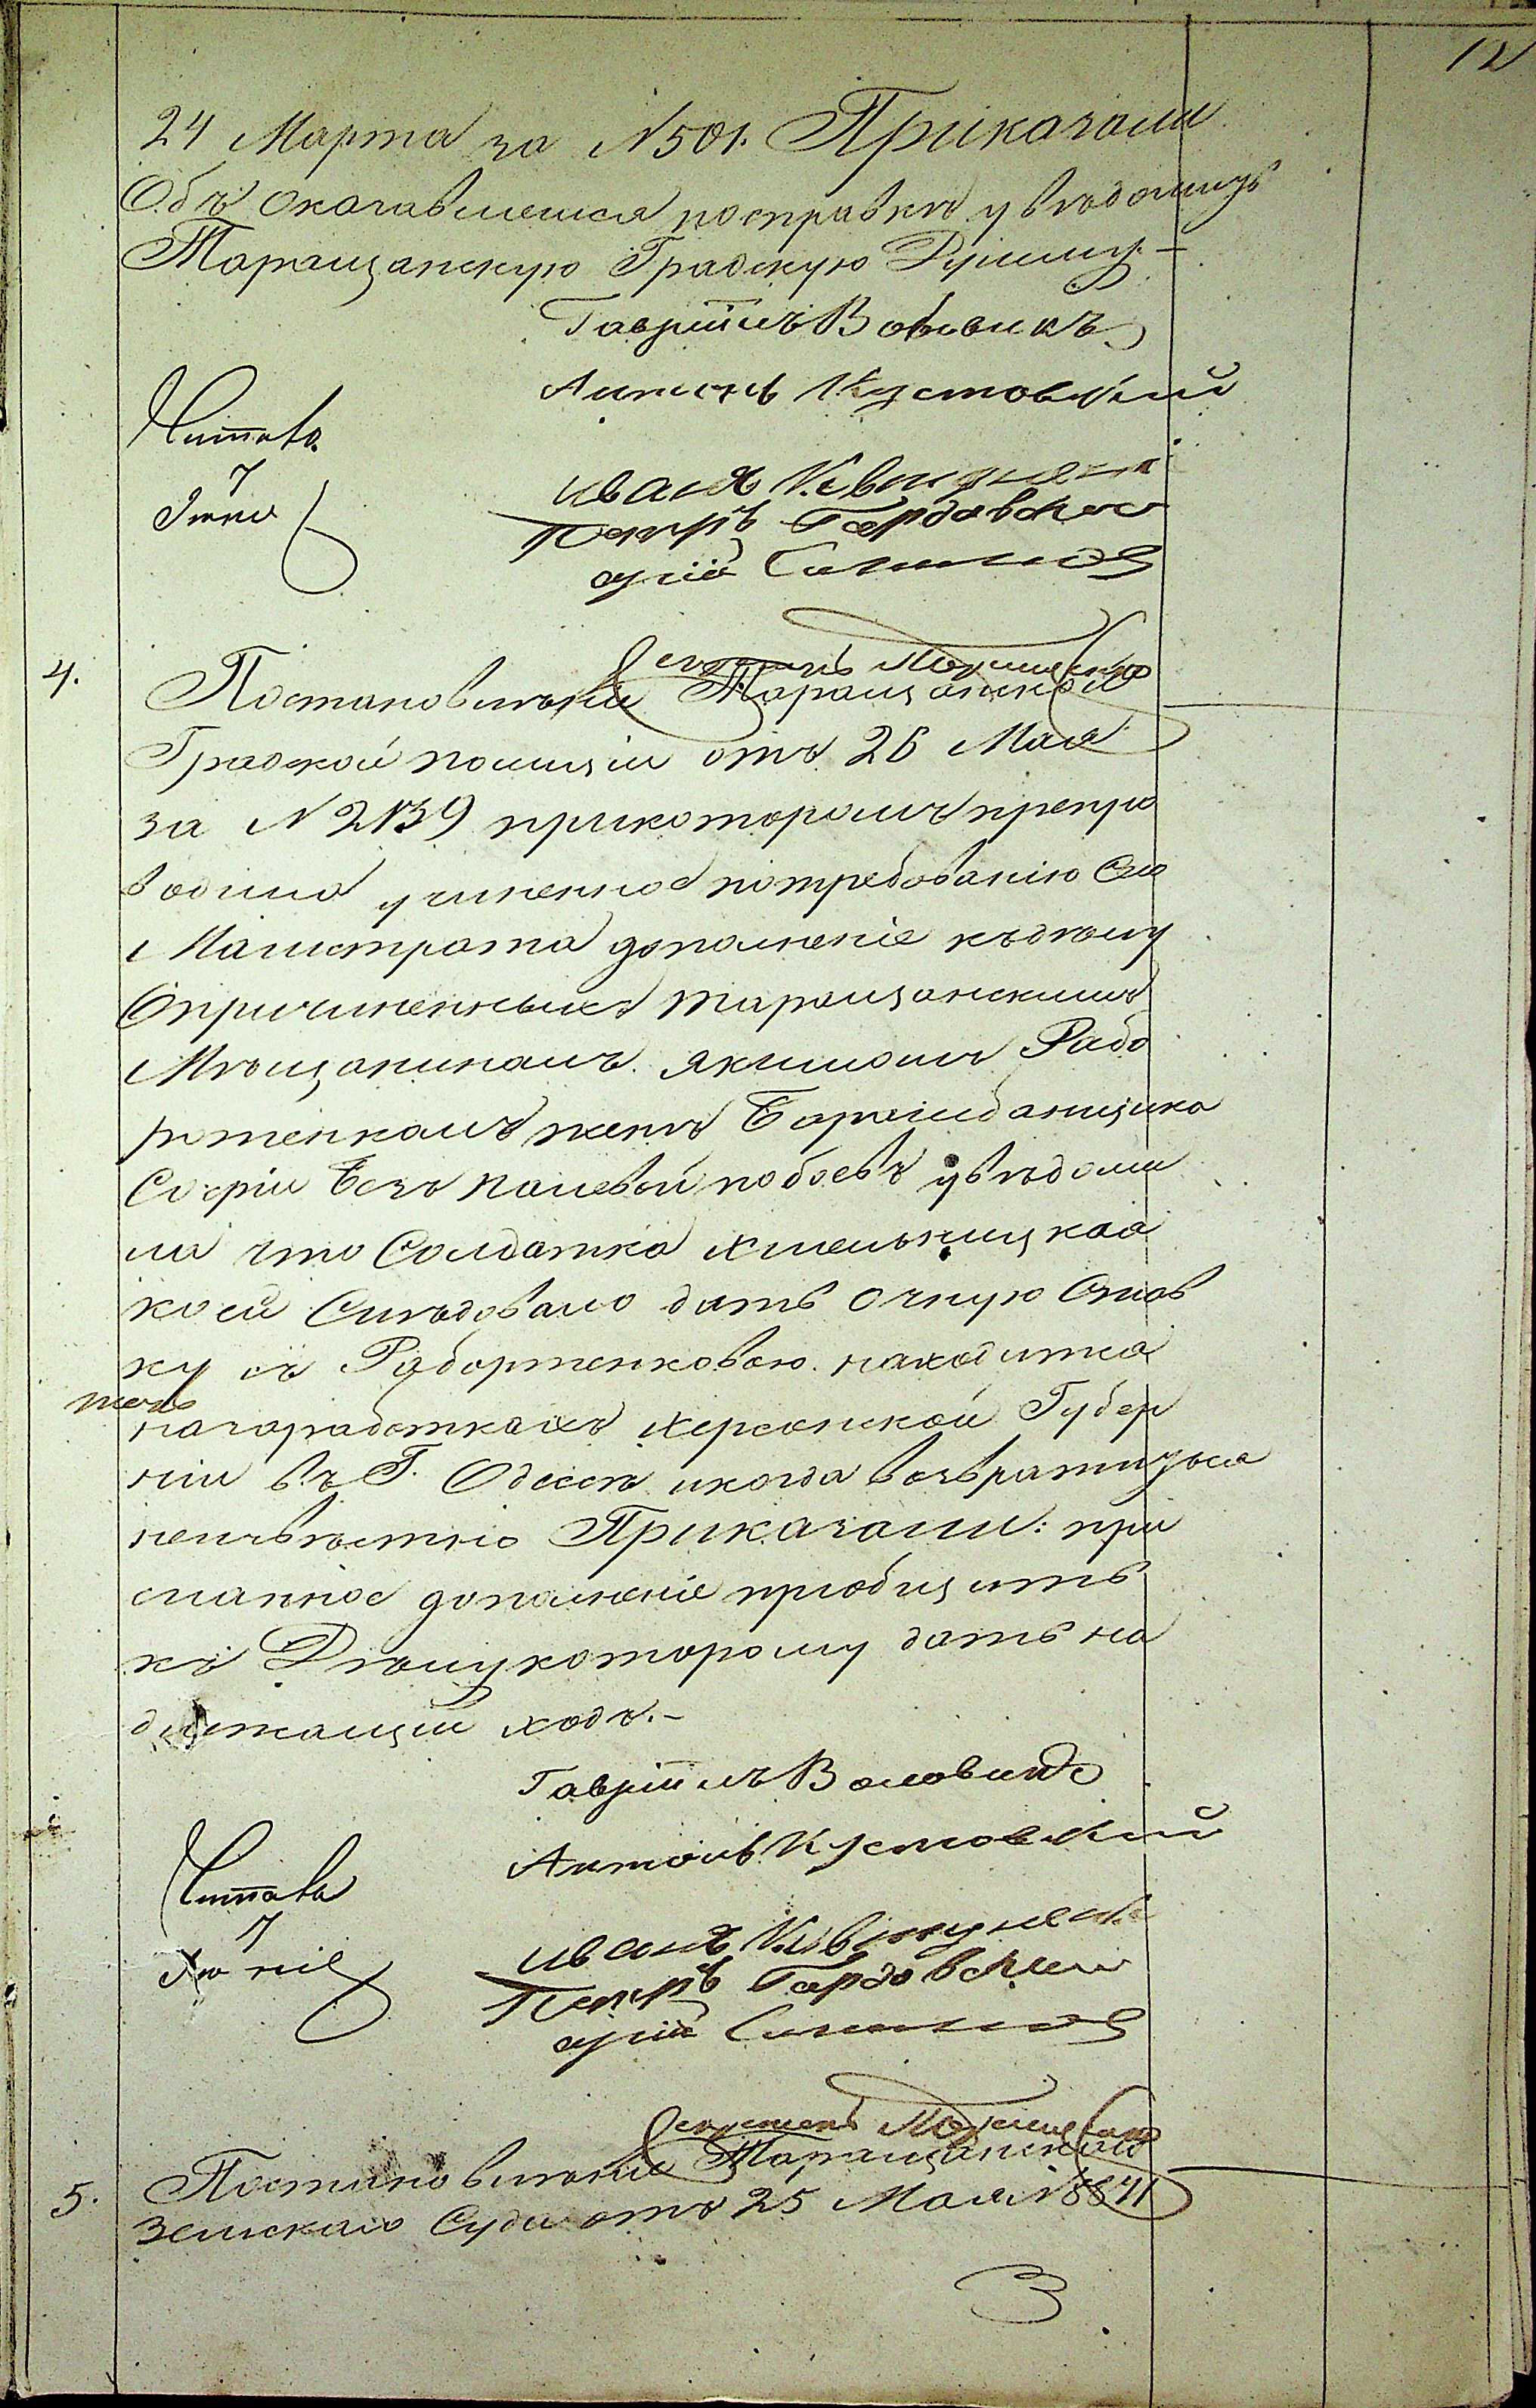 12
24 Марта за N 501. Приказали
Объ оказавшемся по справкѣ увѣдомить
Таращанскую Градскую Думу. —
Гавріилъ Воловикъ
Антонъ Кустовскій
Читалъ
7
Іюня
Иванъ
Петръ Гордовскій
Секретарь
4.
Постановленіе Таращанской
Градской полиціи отъ 26 Мая
за N 2139 прикоторомъ препро
водила учиненное потребованію сего
Магистрата дополненіе кьдѣлу
Опричиненныхъ таращанскимъ
Мѣщаниномъ Якимомъ Рабо
ртенкомъ женѣ Барабанщика
Софіи Безъ палевой побоевъ увѣдоми
ла что Солдатка Хмельницкая
коей Слѣдовало дать очную Став
ку съ Рабортенковою находится
теперь
назаработкахъ Херсонской Губер
ніи въ Г. Одессѣ икогда возвратится
неизвѣстно Приказали: при
сланное дополненіе пріобщить
къ Дѣлу которому дать на
длежащій ходъ. —
Гавріилъ Воловикъ
Антонъ Кустовскій
Читалъ
7
Іюня
Иванъ
Петръ Гордовскій
Секретарь
5.
Постановленіе Таращанскаго
Земскаго Суда отъ 25 Мая N 8841